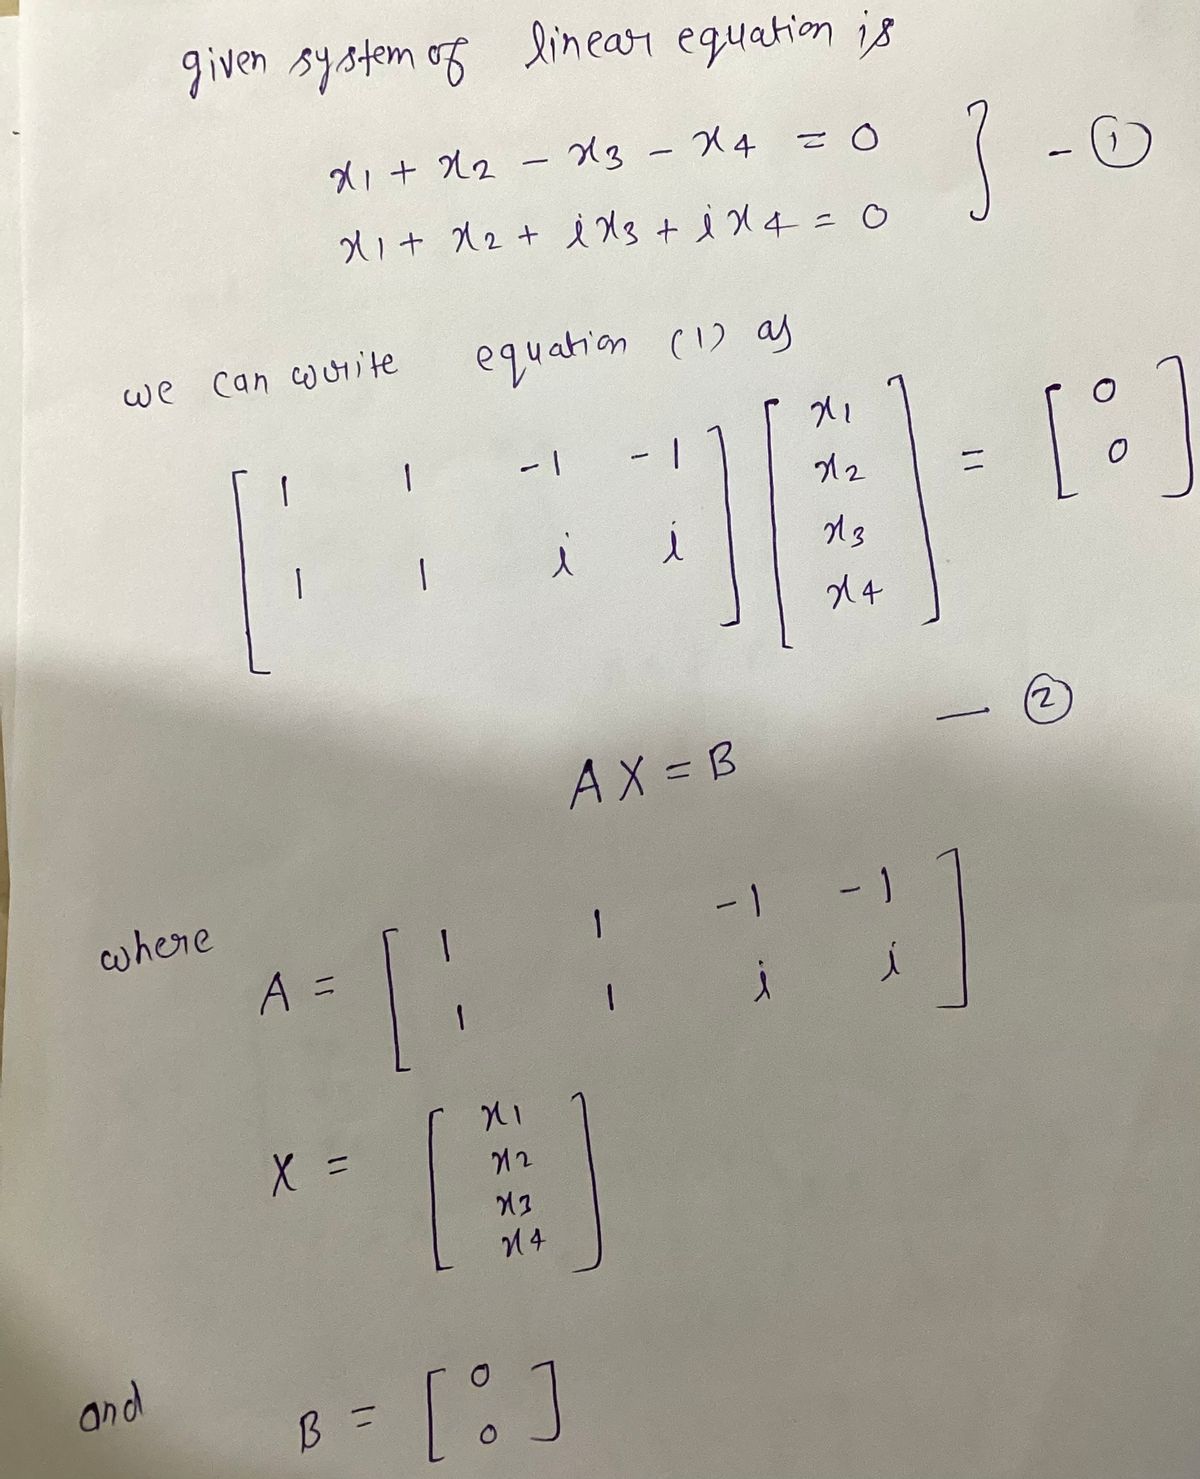 given system of linear equation is
x1 + x2 - x3 - x4 = 0 } - ①
x1 + x2 + ix3 + ix4 = 0
we can write equation (1) as
[ 1 1 -1 -1 ] [ x1 ] = [ 0 ]
[ 1 1 i i ] [ x2 ] [ 0 ]
x3
x4
— ②
AX = B
where A = [ 1 1 -1 -1 ]
[ 1 1 i i ]
X = [ x1
x2
x3
x4 ]
and B = [ 0
0 ]